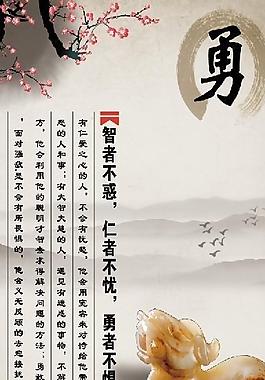 勇
智者不惑，仁者不忧，勇者不惧
有仁爱之心的人，不会有忧愁，他会用宽容来对待给他带
恶的人和事；有大智大慧的人，遇见有迷惑的事物，不解
方，他会利用他的聪明才智来求得解决问题的方法；勇敢
，面对强敌是不会有所畏惧的，他会义无反顾的去迎接挑